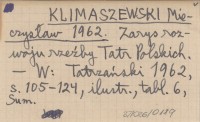 KLIMASZEWSKI Mie-
czysław 1962. Zarys roz-
woju rzeźby Tatr Polskich.
- W: Tatrzański 1962,
s. 105-124, ilustr., tabl. 6,
Sum.